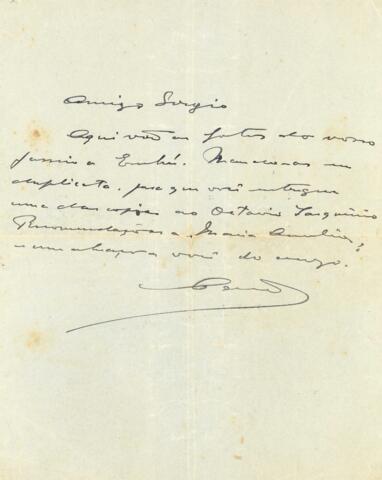 Amigo Sergio
Aqui vão as fotos do nosso
passeio a Embú. Mando-as em
duplicata, para que você entregue
uma das copias ao Octavio Tarquinio
Recomendações a Maria Amelia,
e um abraço a você do amigo.